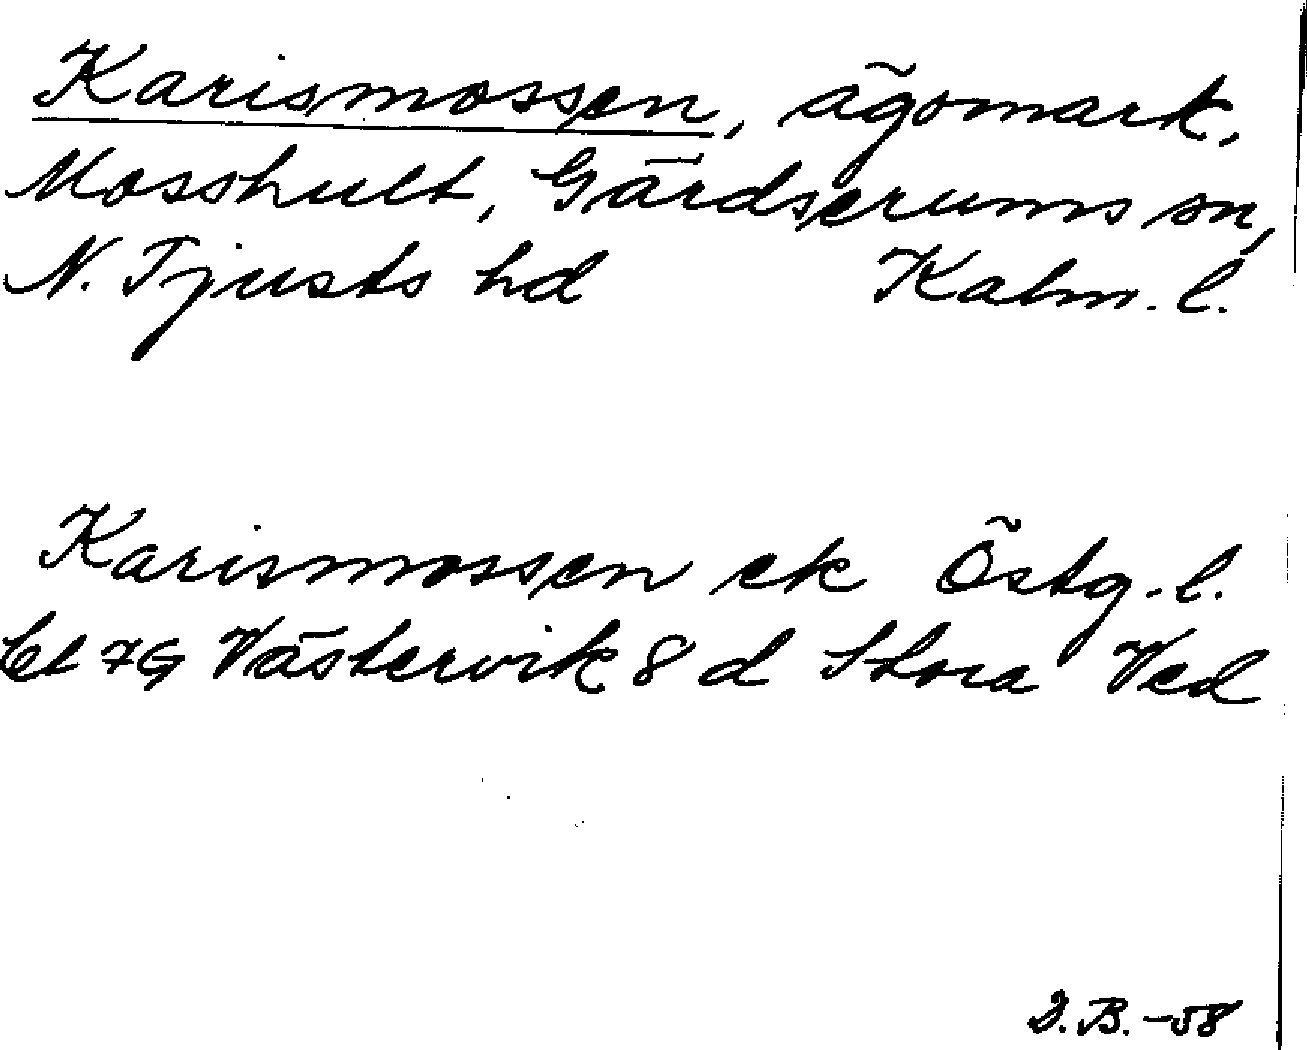 Karismossen, ägomark,
Mosshult, Gärdserums sn,
N. Tjusts hd Kalm. l.
Karismossen ek Östg. l.
bl 7G Västervik 8 d Stora Ved
D.B. -58